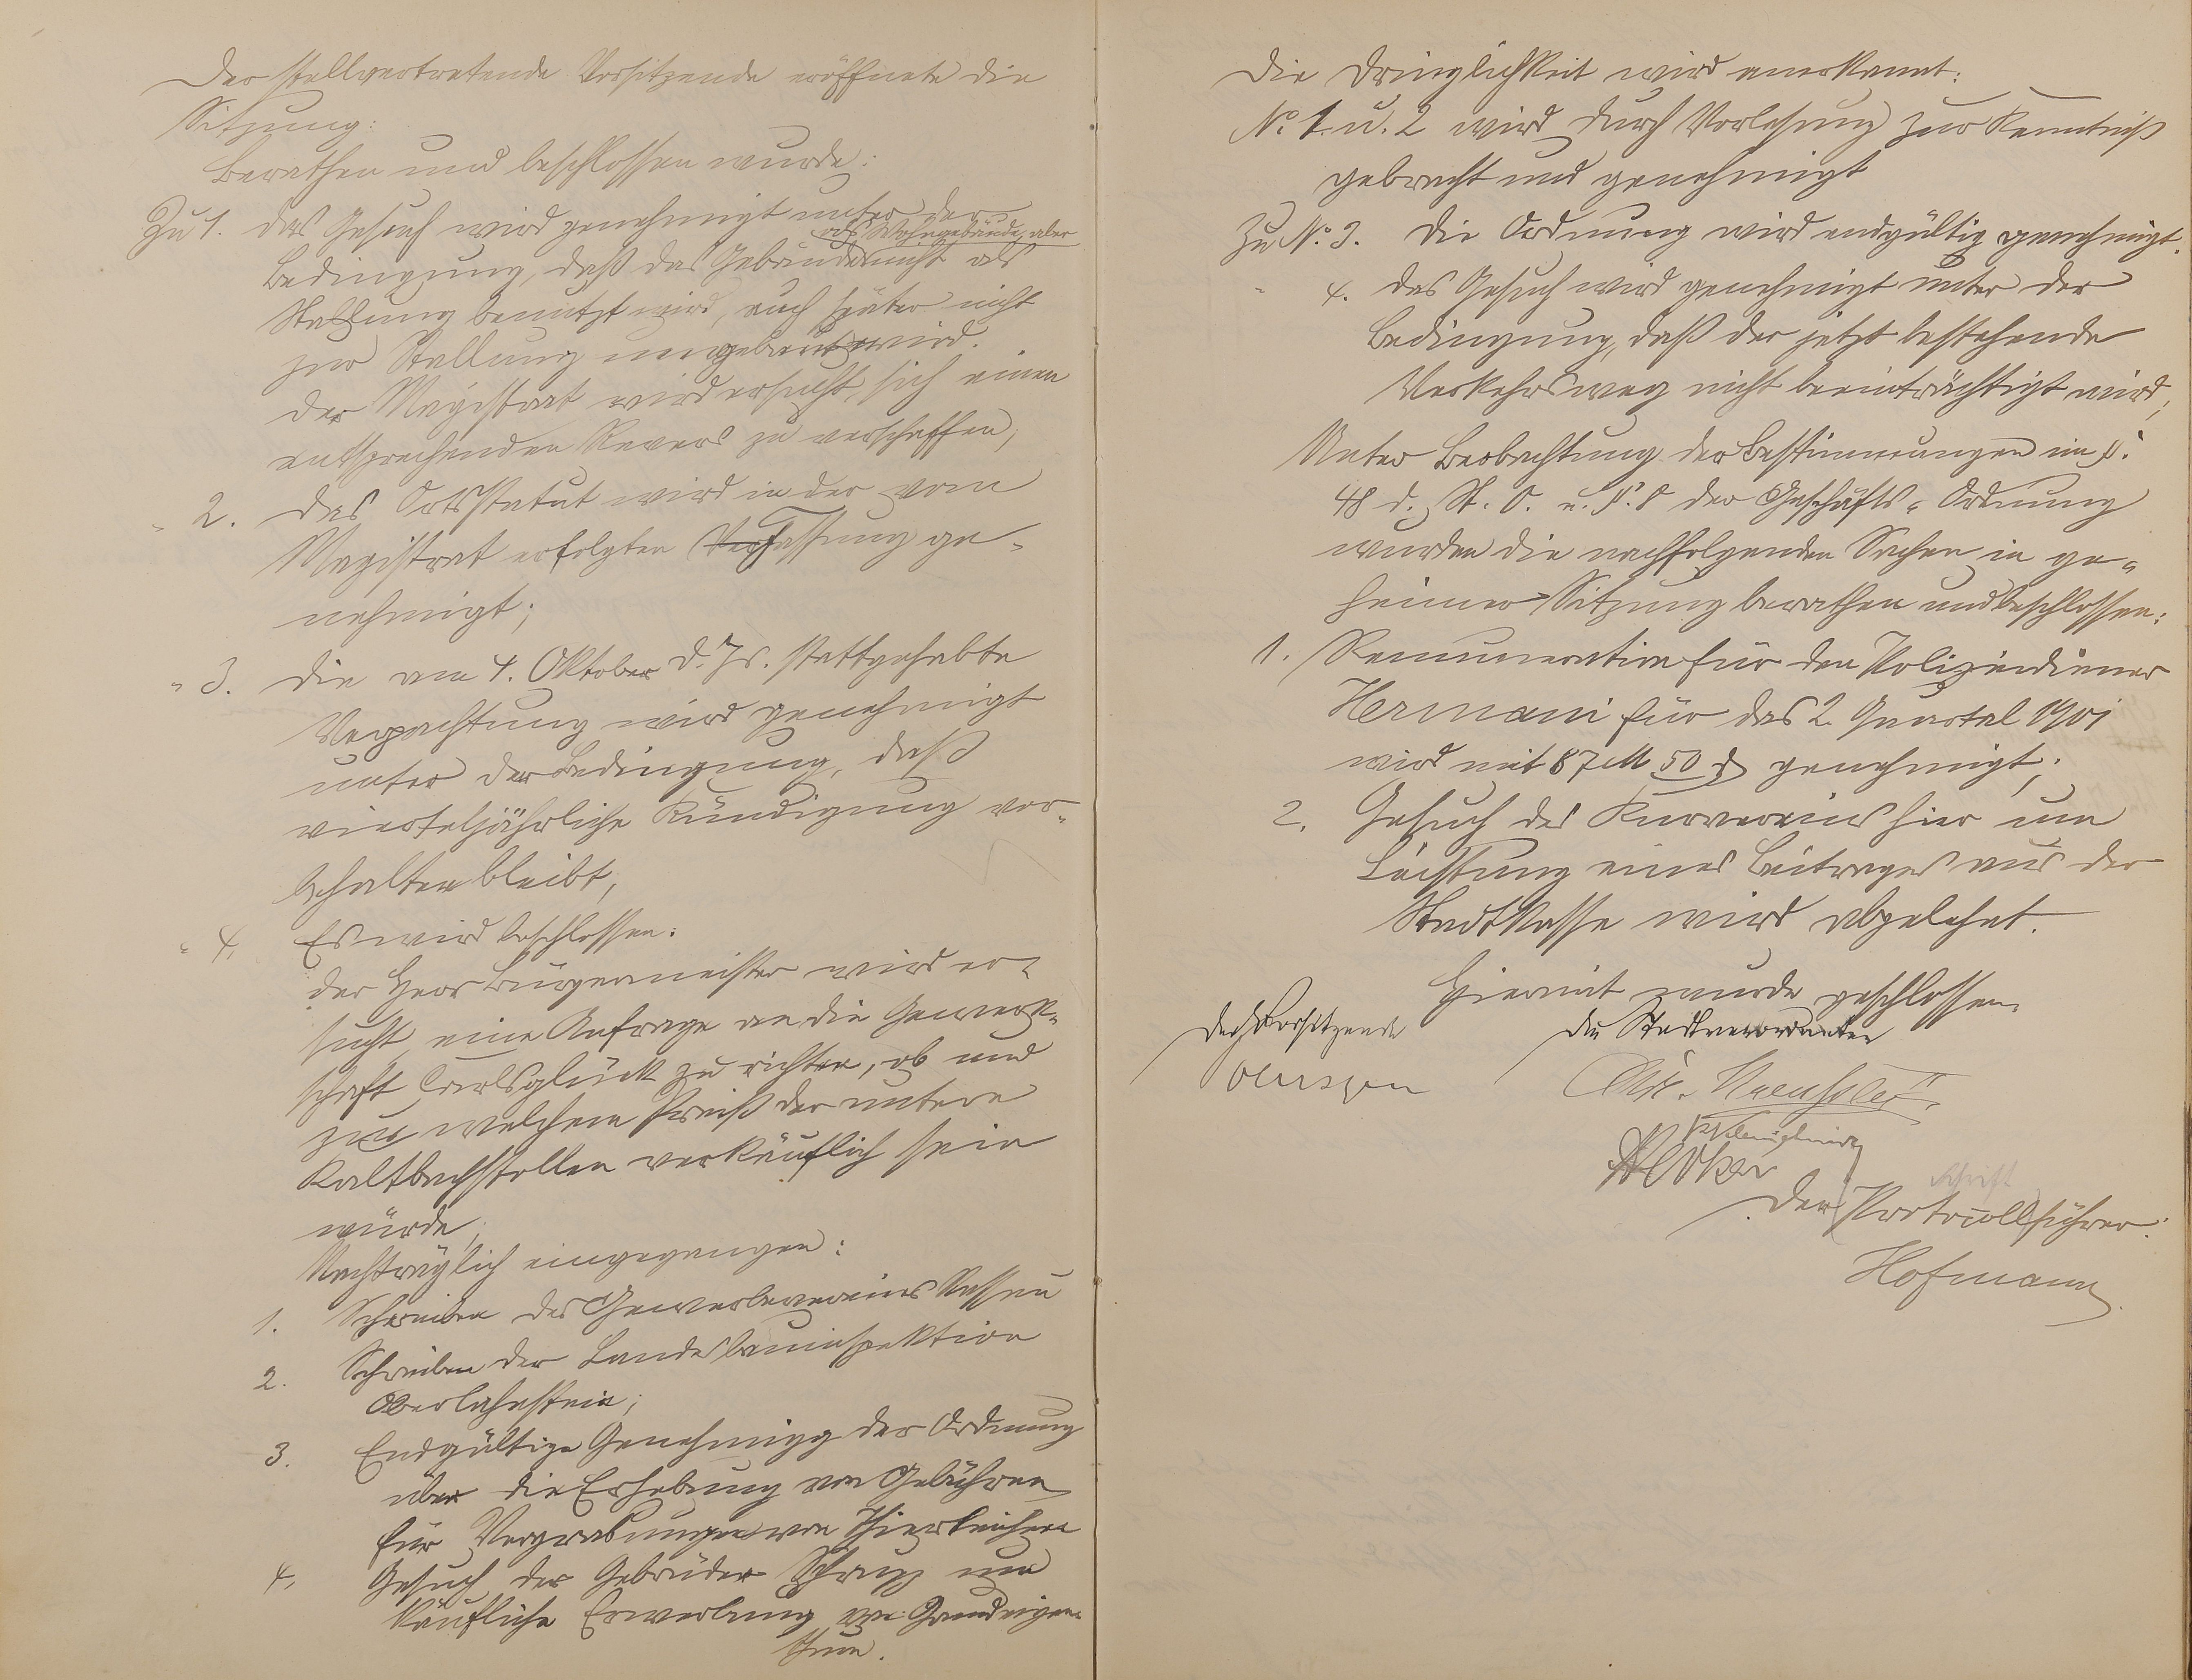 Der stellvertretende Vorsitzende eröffnete die
Sitzung:
Berathen und beschlossen wurde:
Zu 1. Das Gesuch wird genehmigt unter der
als Wohngebäude, aber
Bedingung, daß das Gebäude nicht als
Stallung benutzt wird, auch später nicht
zur Stallung umgebaut wird.
Der Magistrat wird ersucht, sich einen
entsprechenden Revers zu verschaffen;
" 2. Das Ortsstatut wird in der vom
Magistrat erfolgten Verfassung ge-
nehmigt;
" 3. Die am 4. Oktober d. Js. stattgehabte
Verpachtung wird genehmigt
unter der Bedingung, daß
vierteljährliche Kündigung vor-
behalten bleibt;
" 4. Es wird beschlossen:
der Herr Bürgermeister wird er-
sucht, eine Anfrage an die Gewerk-
schaft Carlsglück zu richten, ob und
zu welchem Preiß der untere
Kaltbachstollen verkäuflich sein
würde;
Nachträglich eingegangen:
1. Schreiben des Gewerbevereins Nassau
2. Schreiben der Landesbauinspektion
Oberlahnstein;
3. Endgültige Genehmigg der Ordnung
über die Erhebung von Gebühren
für Vergrabungen von Thierleichen
4. Gesuch der Gebrüder um
käufliche Erwerbung von Grundeigen-
thum.
Die Dringlichkeit wird anerkannt:
No. 1. u. 2 wird durch Vorlesung zur Kenntniß
gebracht und genehmigt
Zu No. 3. Die Ordnung wird endgültig genehmigt.
" 4. Das Gesuch wird genehmigt unter der
Bedingung, daß der jetzt bestehende
Verkehrsweg nicht beeinträchtigt wird;
Unter Beobachtung der Bestimmungen im §.
48 d. St. O. u. §. 8 der Geschäfts-Ordnung
wurden die nachfolgenden Sachen in ge-
heimer Sitzung berathen und beschlossen:
1. Remuneration für den Polizeidiener
Hermani für das 2. Quartal 1901
wird mit 87 M 50 ₰ genehmigt;
2. Gesuch des Kurvereins hier um
Leistung eines Beitrages aus der
Stadtkasse wird abgelehnt.
Hiermit wurde geschlossen.
Der Vorsitzende
Die Stadtverordneten
Der Protocollführer:
Schrift
Hofmann